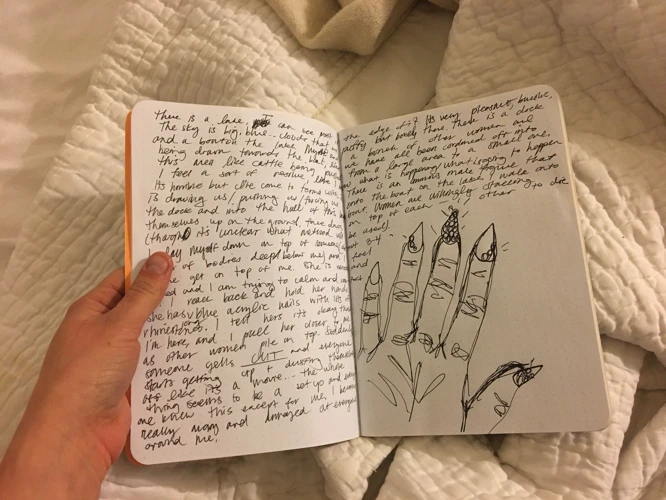 There is a lake, I can see most
The sky is big, blue... clouds that
and a boat on the lake. Myself and
being drawn towards the boat, like
this area like cattle being
I feel a sort of passive, like I
its horrible but I've come to terms with
is drawing us / pushing us / forcing us
the dock and into the hull of this
themselves up on the ground, three deep
(though it's unclear what
I lay myself down on top of someone
of bodies deep below me) and
one get on top of me. She is
and I am trying to calm and
I reach back and hold her hand
she has blue acrylic nails with lots of
rhinestones. I tell hers its okay that
I'm here, and I pull her closer to me
as other women pile on top. Suddenly
someone yells CUT and everyone
starts getting up + dusting themselves
its like its a movie... the whole
thing seems to be a set up and every
one knew this except for me, I become
really angry and enraged at everyone
around me!
the edge of it. Its very pleasant, bucolic,
pretty but lonely there. There is a dock
a bunch of other women are
we have all been corralled off into
from a large area to a small one,
what is happening, what is going to happen
There is an ominous male figure that
onto the boat on the lake, I wake onto
our women are willingly stacking
on top of each other to die
be used)
about 3-4
feel
and